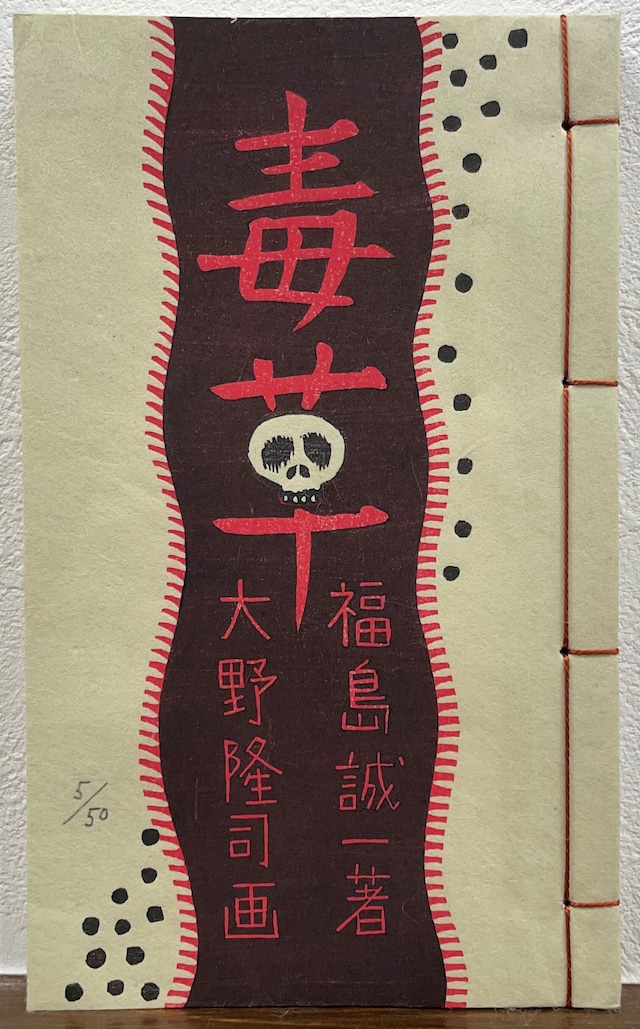 毒草
福島誠一著
大野隆司画
5/50